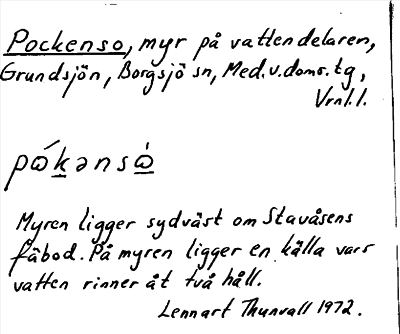 Pockenso, myr på vattendelaren,
Grundsjön, Borgsjö sn, Med.v.doms.tg,
Vrnl.l.
pώk̲ənsώ̲
Myren ligger sydväst om Stavåsens
fäbod. På myren ligger en källa vars
vatten rinner åt två håll.
Lennart Thunvall 1972.